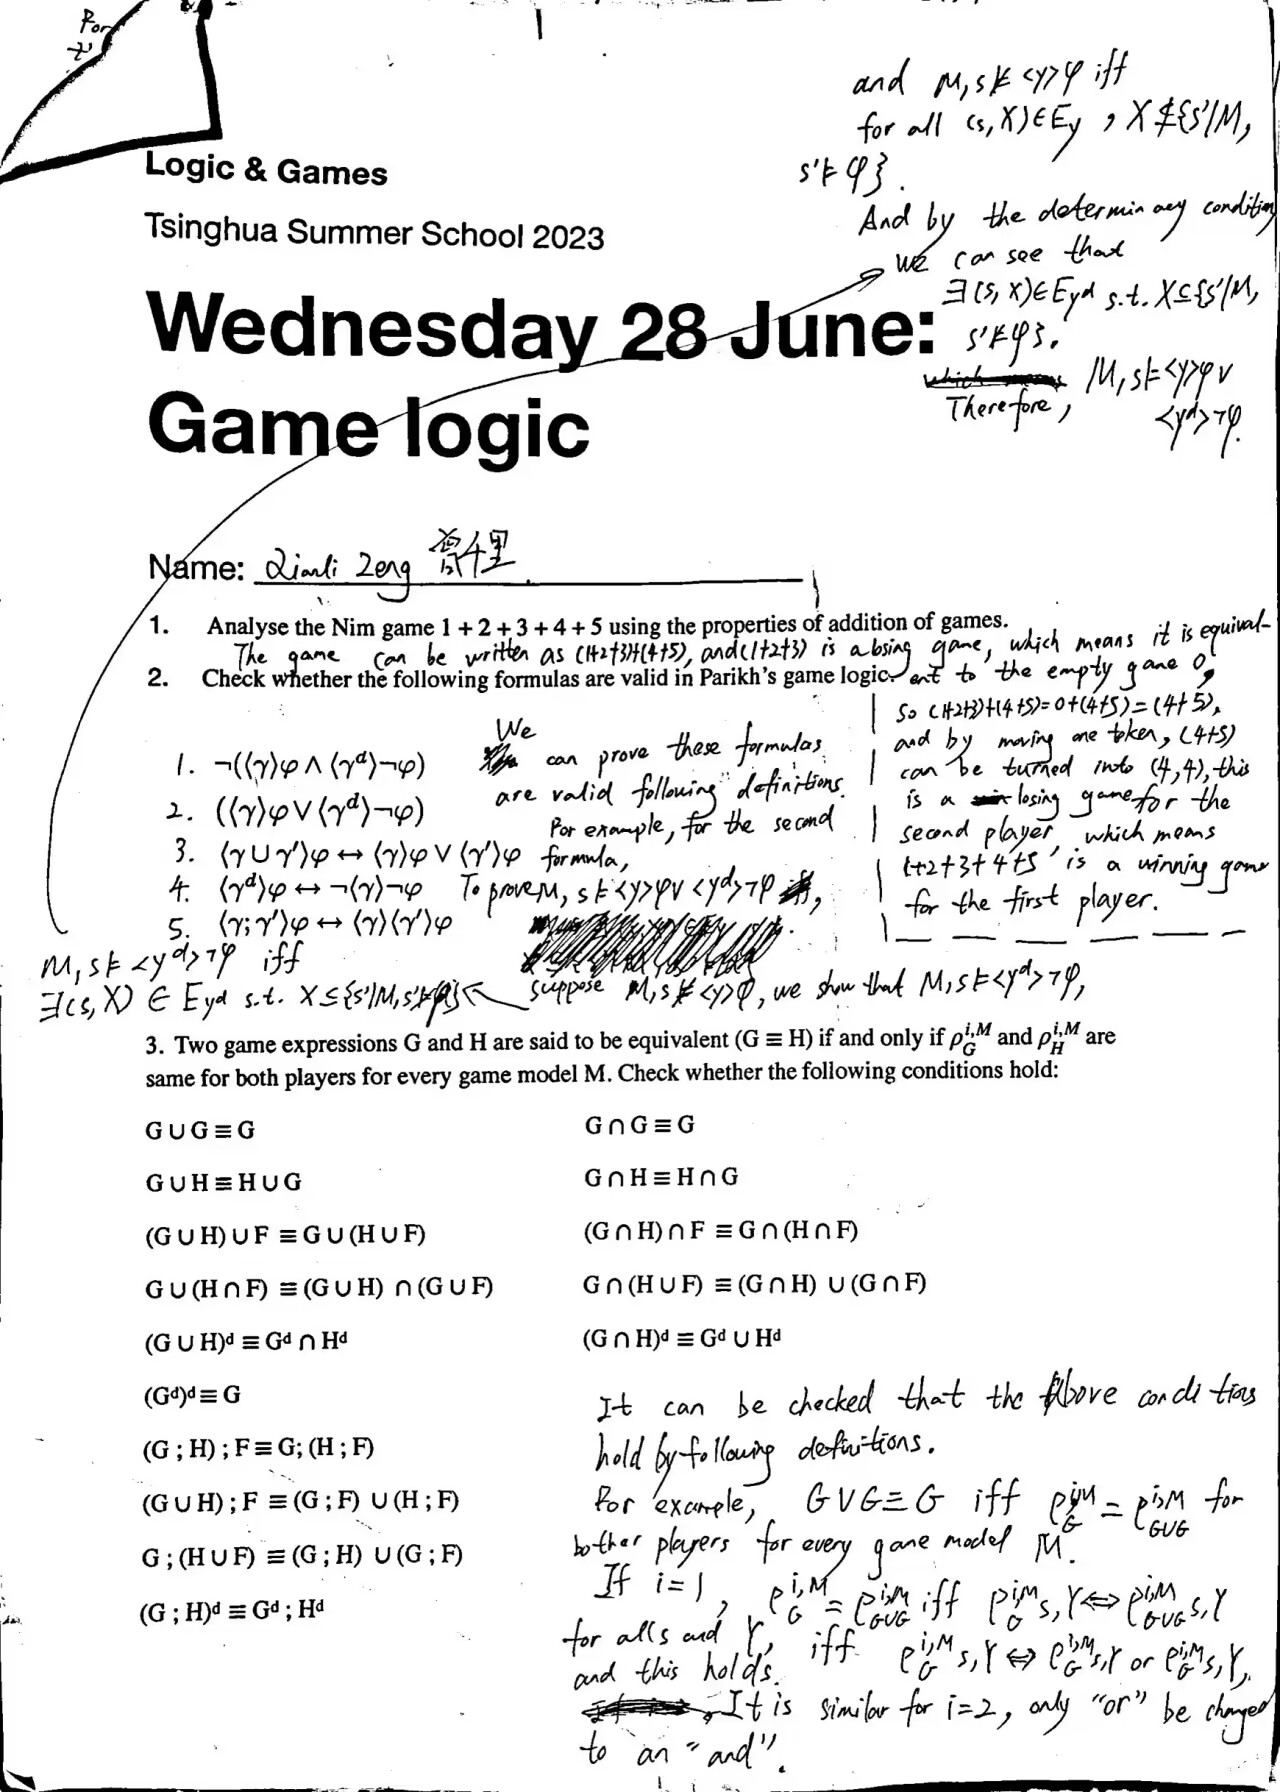 For
and M, s ⊭ <γ>φ iff
for all (s, X) ∈ Eγ, X ⊈ {s'|M,
s' ⊨ φ}.
And by the determinacy condition
we can see that
∃(s, X) ∈ Eγd s.t. X ⊆ {s'|M,
s' ⊭ φ}.
Therefore, M, s ⊨ <γ>φ ∨
<γd>¬φ.
Logic & Games
Tsinghua Summer School 2023
Wednesday 28 June:
Game logic
Name: Qianli Zeng 曾千里
1. Analyse the Nim game 1 + 2 + 3 + 4 + 5 using the properties of addition of games.
The game can be written as (1+2+3)+(4+5), and (1+2+3) is a losing game, which means it is equival-
ent to the empty game 0,
so (1+2+3)+(4+5)=0+(4+5)=(4+5),
and by moving one token, (4+5)
can be turned into (4,4), this
is a losing game for the
second player, which means
1+2+3+4+5 is a winning game
for the first player.
2. Check whether the following formulas are valid in Parikh's game logic.
1. ¬(⟨γ⟩φ ∧ ⟨γᵈ⟩¬φ)
2. (⟨γ⟩φ ∨ ⟨γᵈ⟩¬φ)
3. ⟨γ ∪ γ'⟩φ ↔ ⟨γ⟩φ ∨ ⟨γ'⟩φ
4. ⟨γᵈ⟩φ ↔ ¬⟨γ⟩¬φ
5. ⟨γ; γ'⟩φ ↔ ⟨γ⟩⟨γ'⟩φ
We
can prove these formulas
are valid following definitions.
For example, for the second
formula,
To prove M, s ⊨ <γ>φ ∨ <γd>¬φ,
suppose M, s ⊭ <γ>φ, we show that M, s ⊨ <γd>¬φ,
M, s ⊨ <γd>¬φ iff
∃(s, X) ∈ Eγd s.t. X ⊆ {s'|M, s' ⊭ φ}
3. Two game expressions G and H are said to be equivalent (G ≡ H) if and only if ρ_G^{i,M} and ρ_H^{i,M} are
same for both players for every game model M. Check whether the following conditions hold:
G ∪ G ≡ G
G ∩ G ≡ G
G ∪ H ≡ H ∪ G
G ∩ H ≡ H ∩ G
(G ∪ H) ∪ F ≡ G ∪ (H ∪ F)
(G ∩ H) ∩ F ≡ G ∩ (H ∩ F)
G ∪ (H ∩ F) ≡ (G ∪ H) ∩ (G ∪ F)
G ∩ (H ∪ F) ≡ (G ∩ H) ∪ (G ∩ F)
(G ∪ H)ᵈ ≡ Gᵈ ∩ Hᵈ
(G ∩ H)ᵈ ≡ Gᵈ ∪ Hᵈ
(Gᵈ)ᵈ ≡ G
(G ; H) ; F ≡ G; (H ; F)
(G ∪ H) ; F ≡ (G ; F) ∪ (H ; F)
G ; (H ∪ F) ≡ (G ; H) ∪ (G ; F)
(G ; H)ᵈ ≡ Gᵈ ; Hᵈ
It can be checked that the above conditions
hold by following definitions.
For example, G∪G≡G iff ρ_G^{i,M} = ρ_{G∪G}^{i,M} for
bother players for every game model M.
If i=1, ρ_G^{i,M} = ρ_{G∪G}^{i,M} iff ρ_G^{i,M} s,Y ⇔ ρ_{G∪G}^{i,M} s,Y
for all s and Y, iff ρ_G^{i,M} s,Y ⇔ ρ_G^{i,M} s,Y or ρ_G^{i,M} s,Y,
and this holds.
It is similar for i=2, only "or" be changed
to an "and".